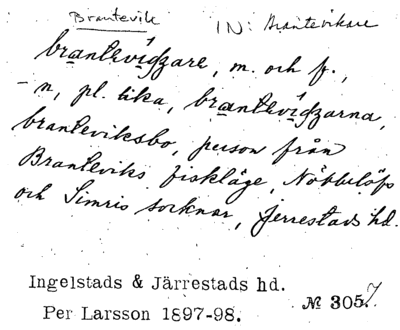 Brantevik IN: Brantevikare
brantevidzare, m. och f.,
- n, pl. lika, brantevidzarna,
branteviksbo, person från
Branteviks fiskläge, Nöbbelöfs
och Simris socknar, Jerrestads hd.
Ingelstads & Järrestads hd.
Per Larsson 1897-98. № 3057